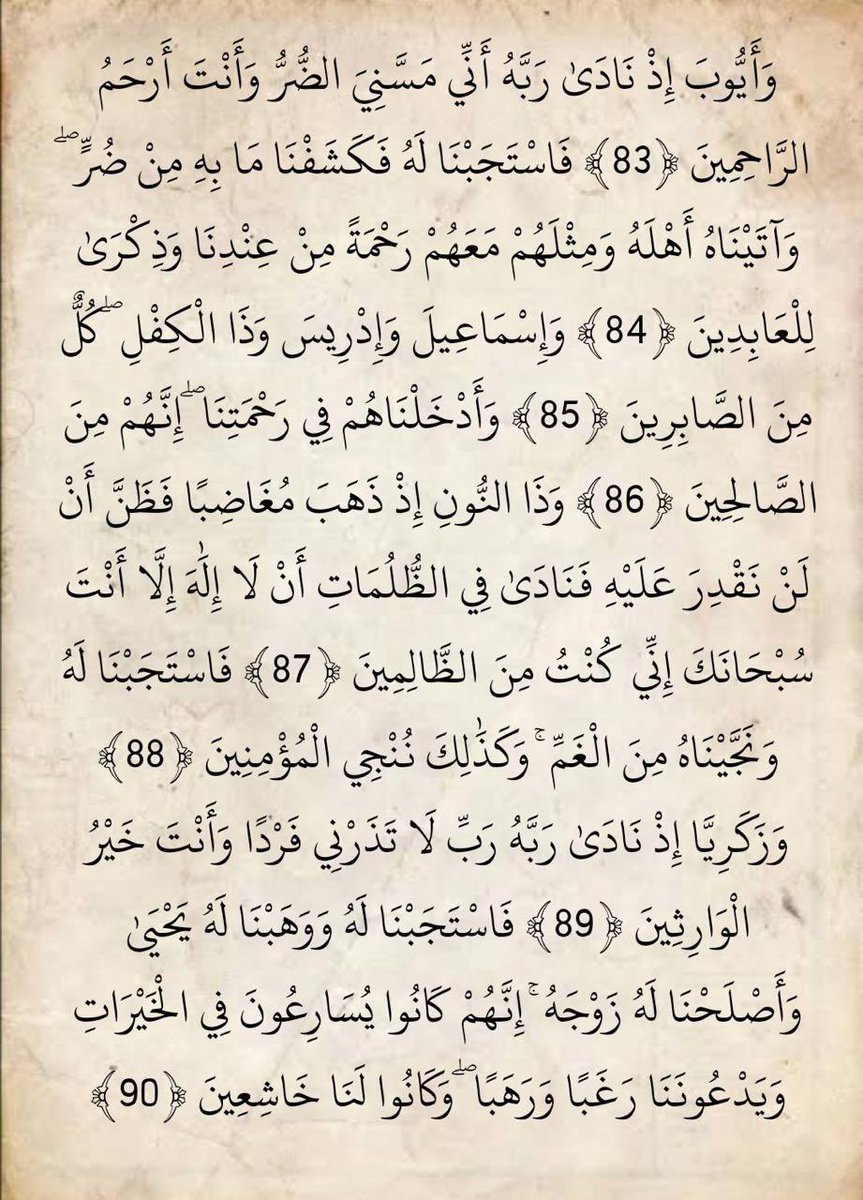 وَأَيُّوبَ إِذْ نَادَىٰ رَبَّهُ أَنِّي مَسَّنِيَ الضُّرُّ وَأَنْتَ أَرْحَمُ
الرَّاحِمِينَ ﴿83﴾ فَاسْتَجَبْنَا لَهُ فَكَشَفْنَا مَا بِهِ مِنْ ضُرٍّ ۖ
وَآتَيْنَاهُ أَهْلَهُ وَمِثْلَهُمْ مَعَهُمْ رَحْمَةً مِنْ عِنْدِنَا وَذِكْرَىٰ
لِلْعَابِدِينَ ﴿84﴾ وَإِسْمَاعِيلَ وَإِدْرِيسَ وَذَا الْكِفْلِ ۖ كُلٌّ
مِنَ الصَّابِرِينَ ﴿85﴾ وَأَدْخَلْنَاهُمْ فِي رَحْمَتِنَا ۖ إِنَّهُمْ مِنَ
الصَّالِحِينَ ﴿86﴾ وَذَا النُّونِ إِذْ ذَهَبَ مُغَاضِبًا فَظَنَّ أَنْ
لَنْ نَقْدِرَ عَلَيْهِ فَنَادَىٰ فِي الظُّلُمَاتِ أَنْ لَا إِلَٰهَ إِلَّا أَنْتَ
سُبْحَانَكَ إِنِّي كُنْتُ مِنَ الظَّالِمِينَ ﴿87﴾ فَاسْتَجَبْنَا لَهُ
وَنَجَّيْنَاهُ مِنَ الْغَمِّ ۚ وَكَذَٰلِكَ نُنْجِي الْمُؤْمِنِينَ ﴿88﴾
وَزَكَرِيَّا إِذْ نَادَىٰ رَبَّهُ رَبِّ لَا تَذَرْنِي فَرْدًا وَأَنْتَ خَيْرُ
الْوَارِثِينَ ﴿89﴾ فَاسْتَجَبْنَا لَهُ وَوَهَبْنَا لَهُ يَحْيَىٰ
وَأَصْلَحْنَا لَهُ زَوْجَهُ ۚ إِنَّهُمْ كَانُوا يُسَارِعُونَ فِي الْخَيْرَاتِ
وَيَدْعُونَنَا رَغَبًا وَرَهَبًا ۖ وَكَانُوا لَنَا خَاشِعِينَ ﴿90﴾